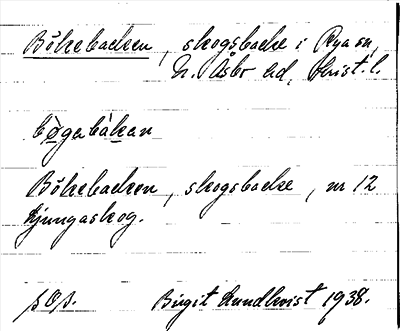 Bökebacken, skogsbacke i Rya sn,
N. Åsbo hd, Krist. l.
bøgabàkan
Bökebacken, skogsbacke, nr 12
Ljungaskog.
Birgit Lundkvist 1938.